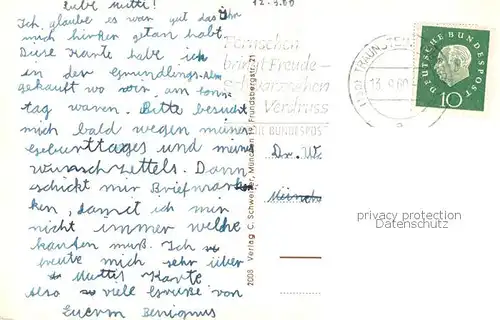 Liebe Mutti!
Ich glaube es war gut das Ihr
mich hinter getan habt
Diese Karte habe ich
in der Gmundlings-Alm
gekauft wo wir am Sonn
tag waren. Bitte besucht
mich bald wegen meines
Geburttages und meines
Wunschzettels. Dann
schickt mir Briefmarken
ken, damit ich mir
nicht immer welche
kaufen muß. Ich
freute mich sehr über
Muttis Karte
Also viele Grüße von
Euerm Benignus
2008 Verlag C. Schwei München 19, Frundsbergstr. 21
12.9.60
Fernsehen
bringt Freude -
Verdruss
BUNDESPOST
TRAUNSTEIN
13.9.60
DEUTSCHE BUNDESPOST
10
Dr. W.
privacy protection
Datenschutz